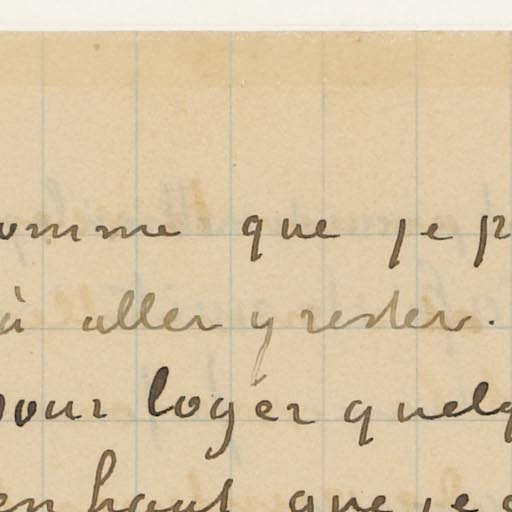 omme que je p
à aller y rester.
pour loger quelq
en haut que je